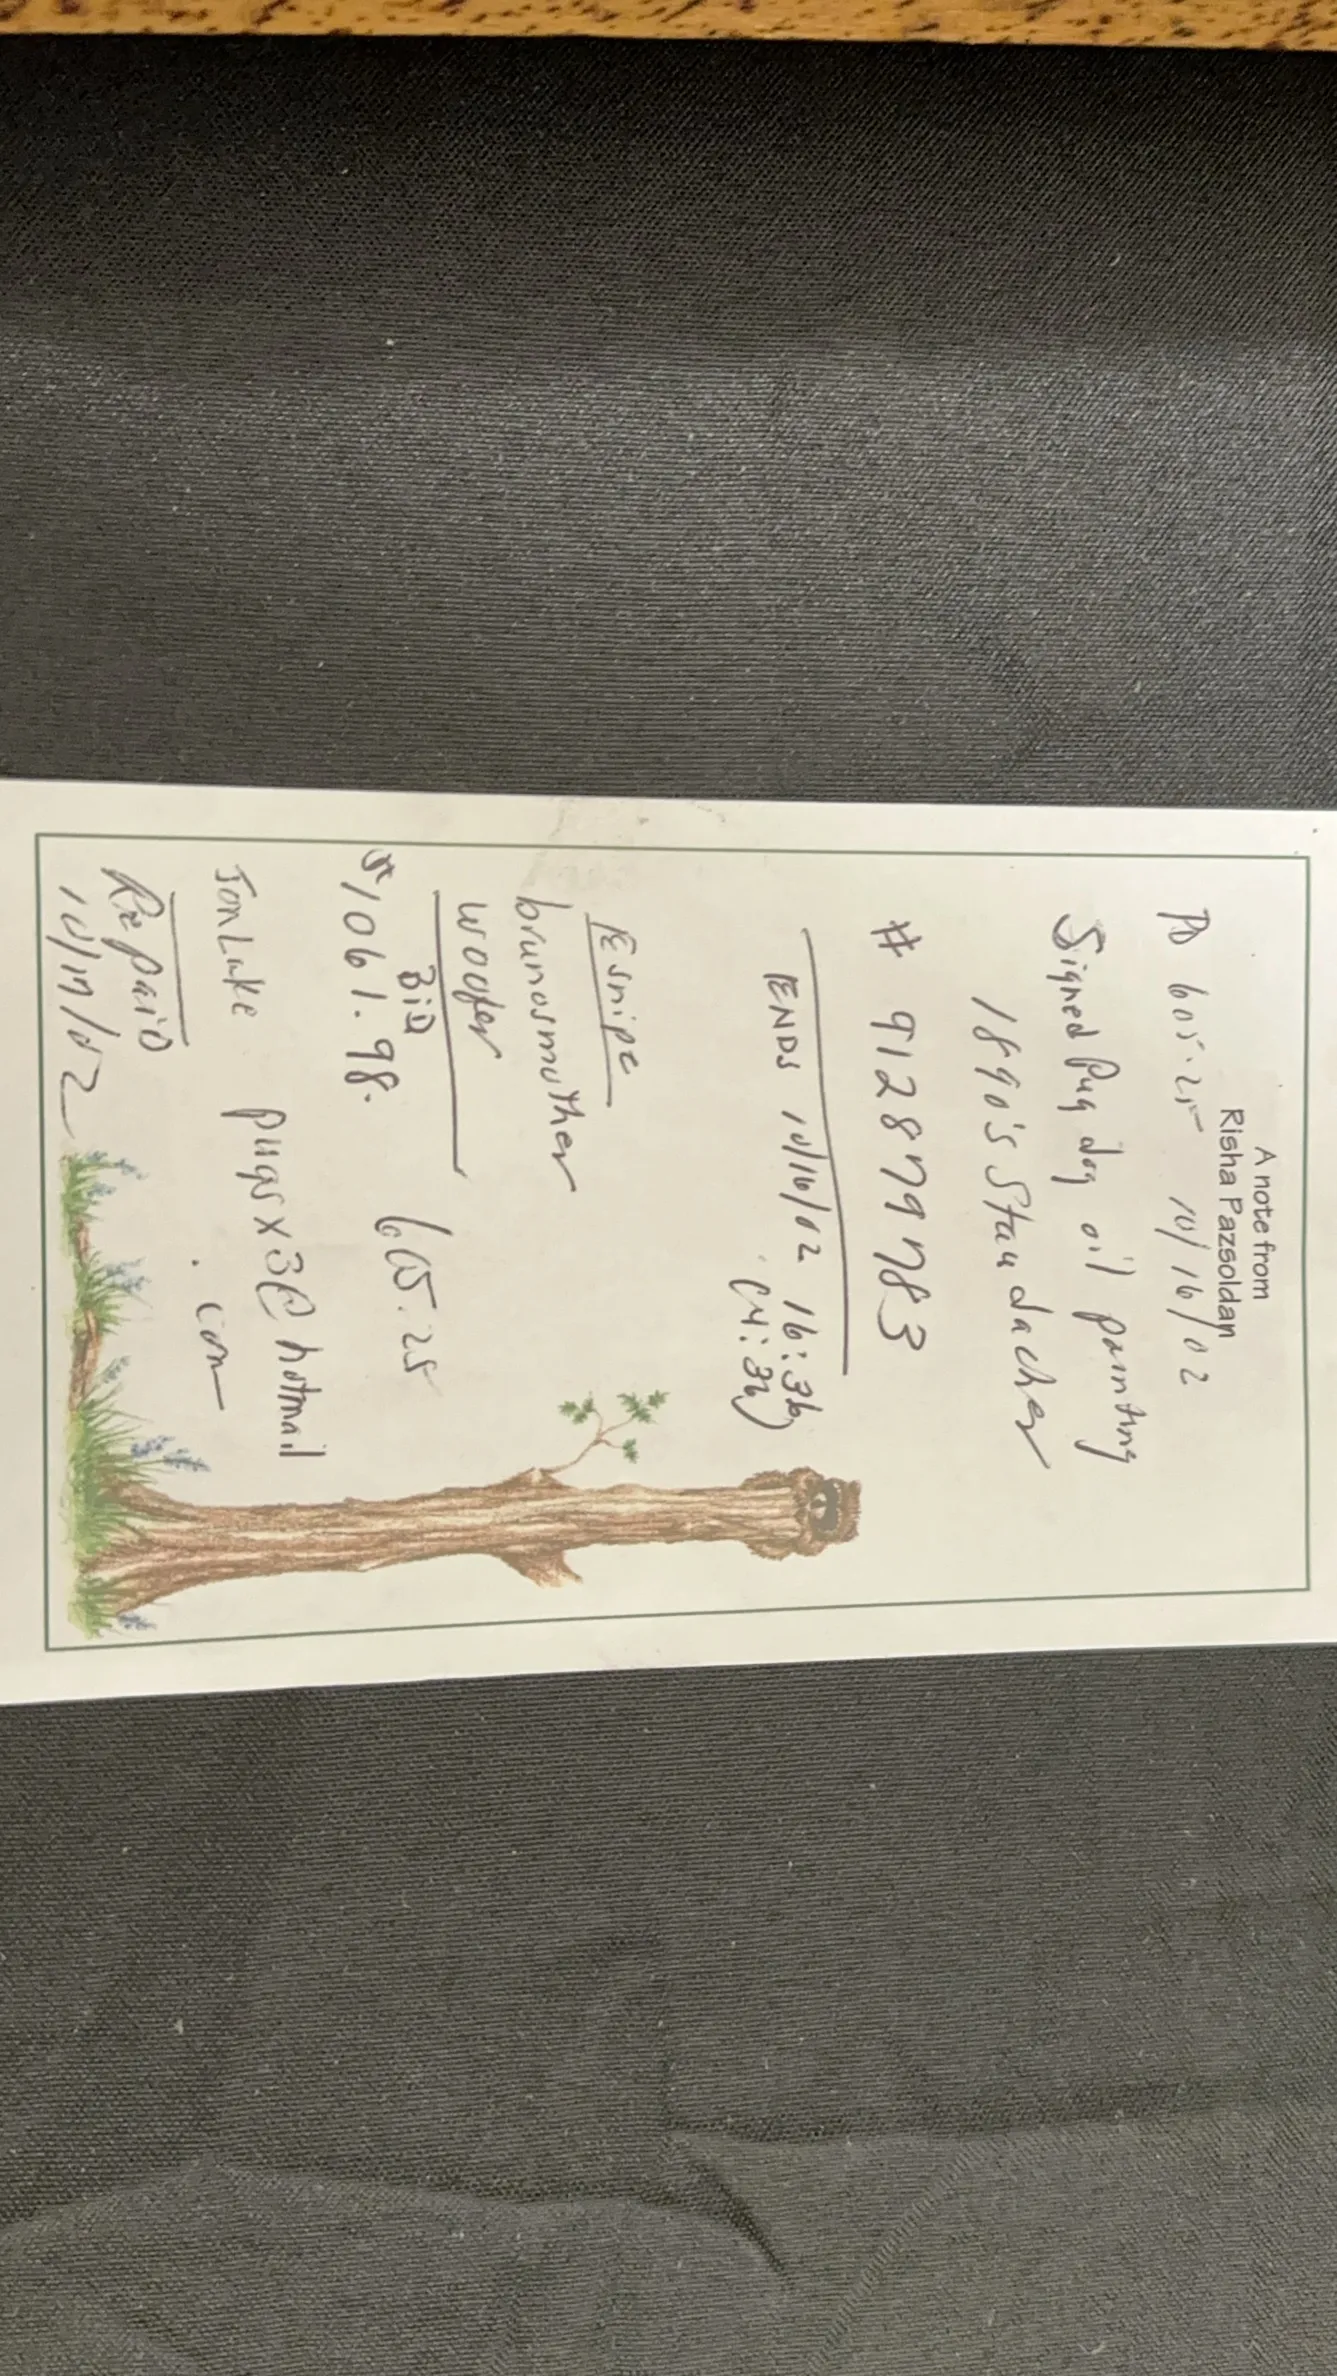 A note from
Risha Pazsoldan
PD 605.25 10/16/02
Signed Pug dog oil painting
1890's Staudacher
# 912879783
ENDS 10/16/02 16:36
(4:36)
Esnipe
brunosmother
woofer
Bid
$1061.98. 605.25
Jon Luke pugsx3@hotmail
.com
Re paid
10/17/02